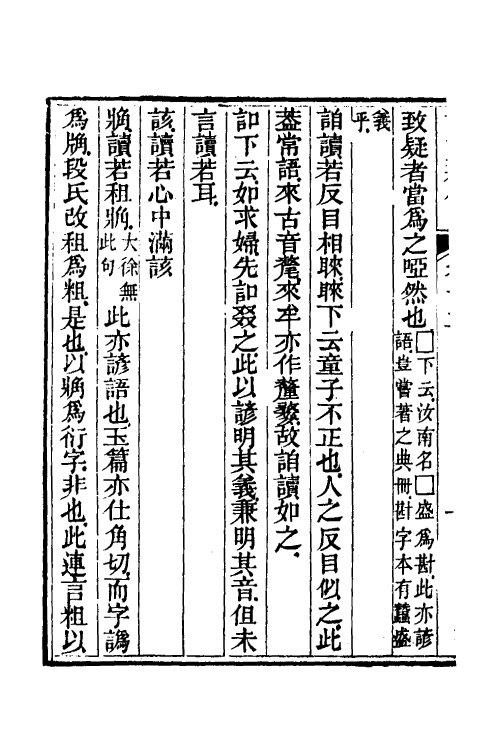 致疑者當爲之啞然也□下云汝南名□盛爲斟此亦諺語豈嘗著之典冊斟字本有蠶盛
義乎
䛱讀若反目相睞睞下云童子不正也人之反目似之此
葢常語來古音氂來牟亦作釐䵀故䛱讀如之
訆下云如求婦先訆叕之此以諺明其義兼明其音但未
言讀若耳
該讀若心中滿該
讀若粗大徐無此句此亦諺語也玉篇亦仕角切而字譌
爲段氏改粗爲粗是也以爲衍字非也此連言粗以